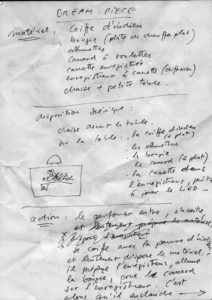 DREAM-PIECE
matériel : coiffe d'indien
bougie (plate de chauffe plat)
allumettes
canard à roulettes
cassette enregistrée
enregistreur à cassette
chaise et petite table.
disposition scénique :
chaise devant la table.
sur la table : la coiffe d'indien
(à plat)
les allumettes
la bougie
le canard (à plat)
la cassette dans
l'enregistreur, prêt
à jouer le
action : le performer entre, s'assied
et lentement
se coiffe avec la
et lentement dispose le matériel,
il prépare l'enregistreur, allume
la bougie, pose le canard
sur l'enregistreur. C'est
alors qu'il enclenche